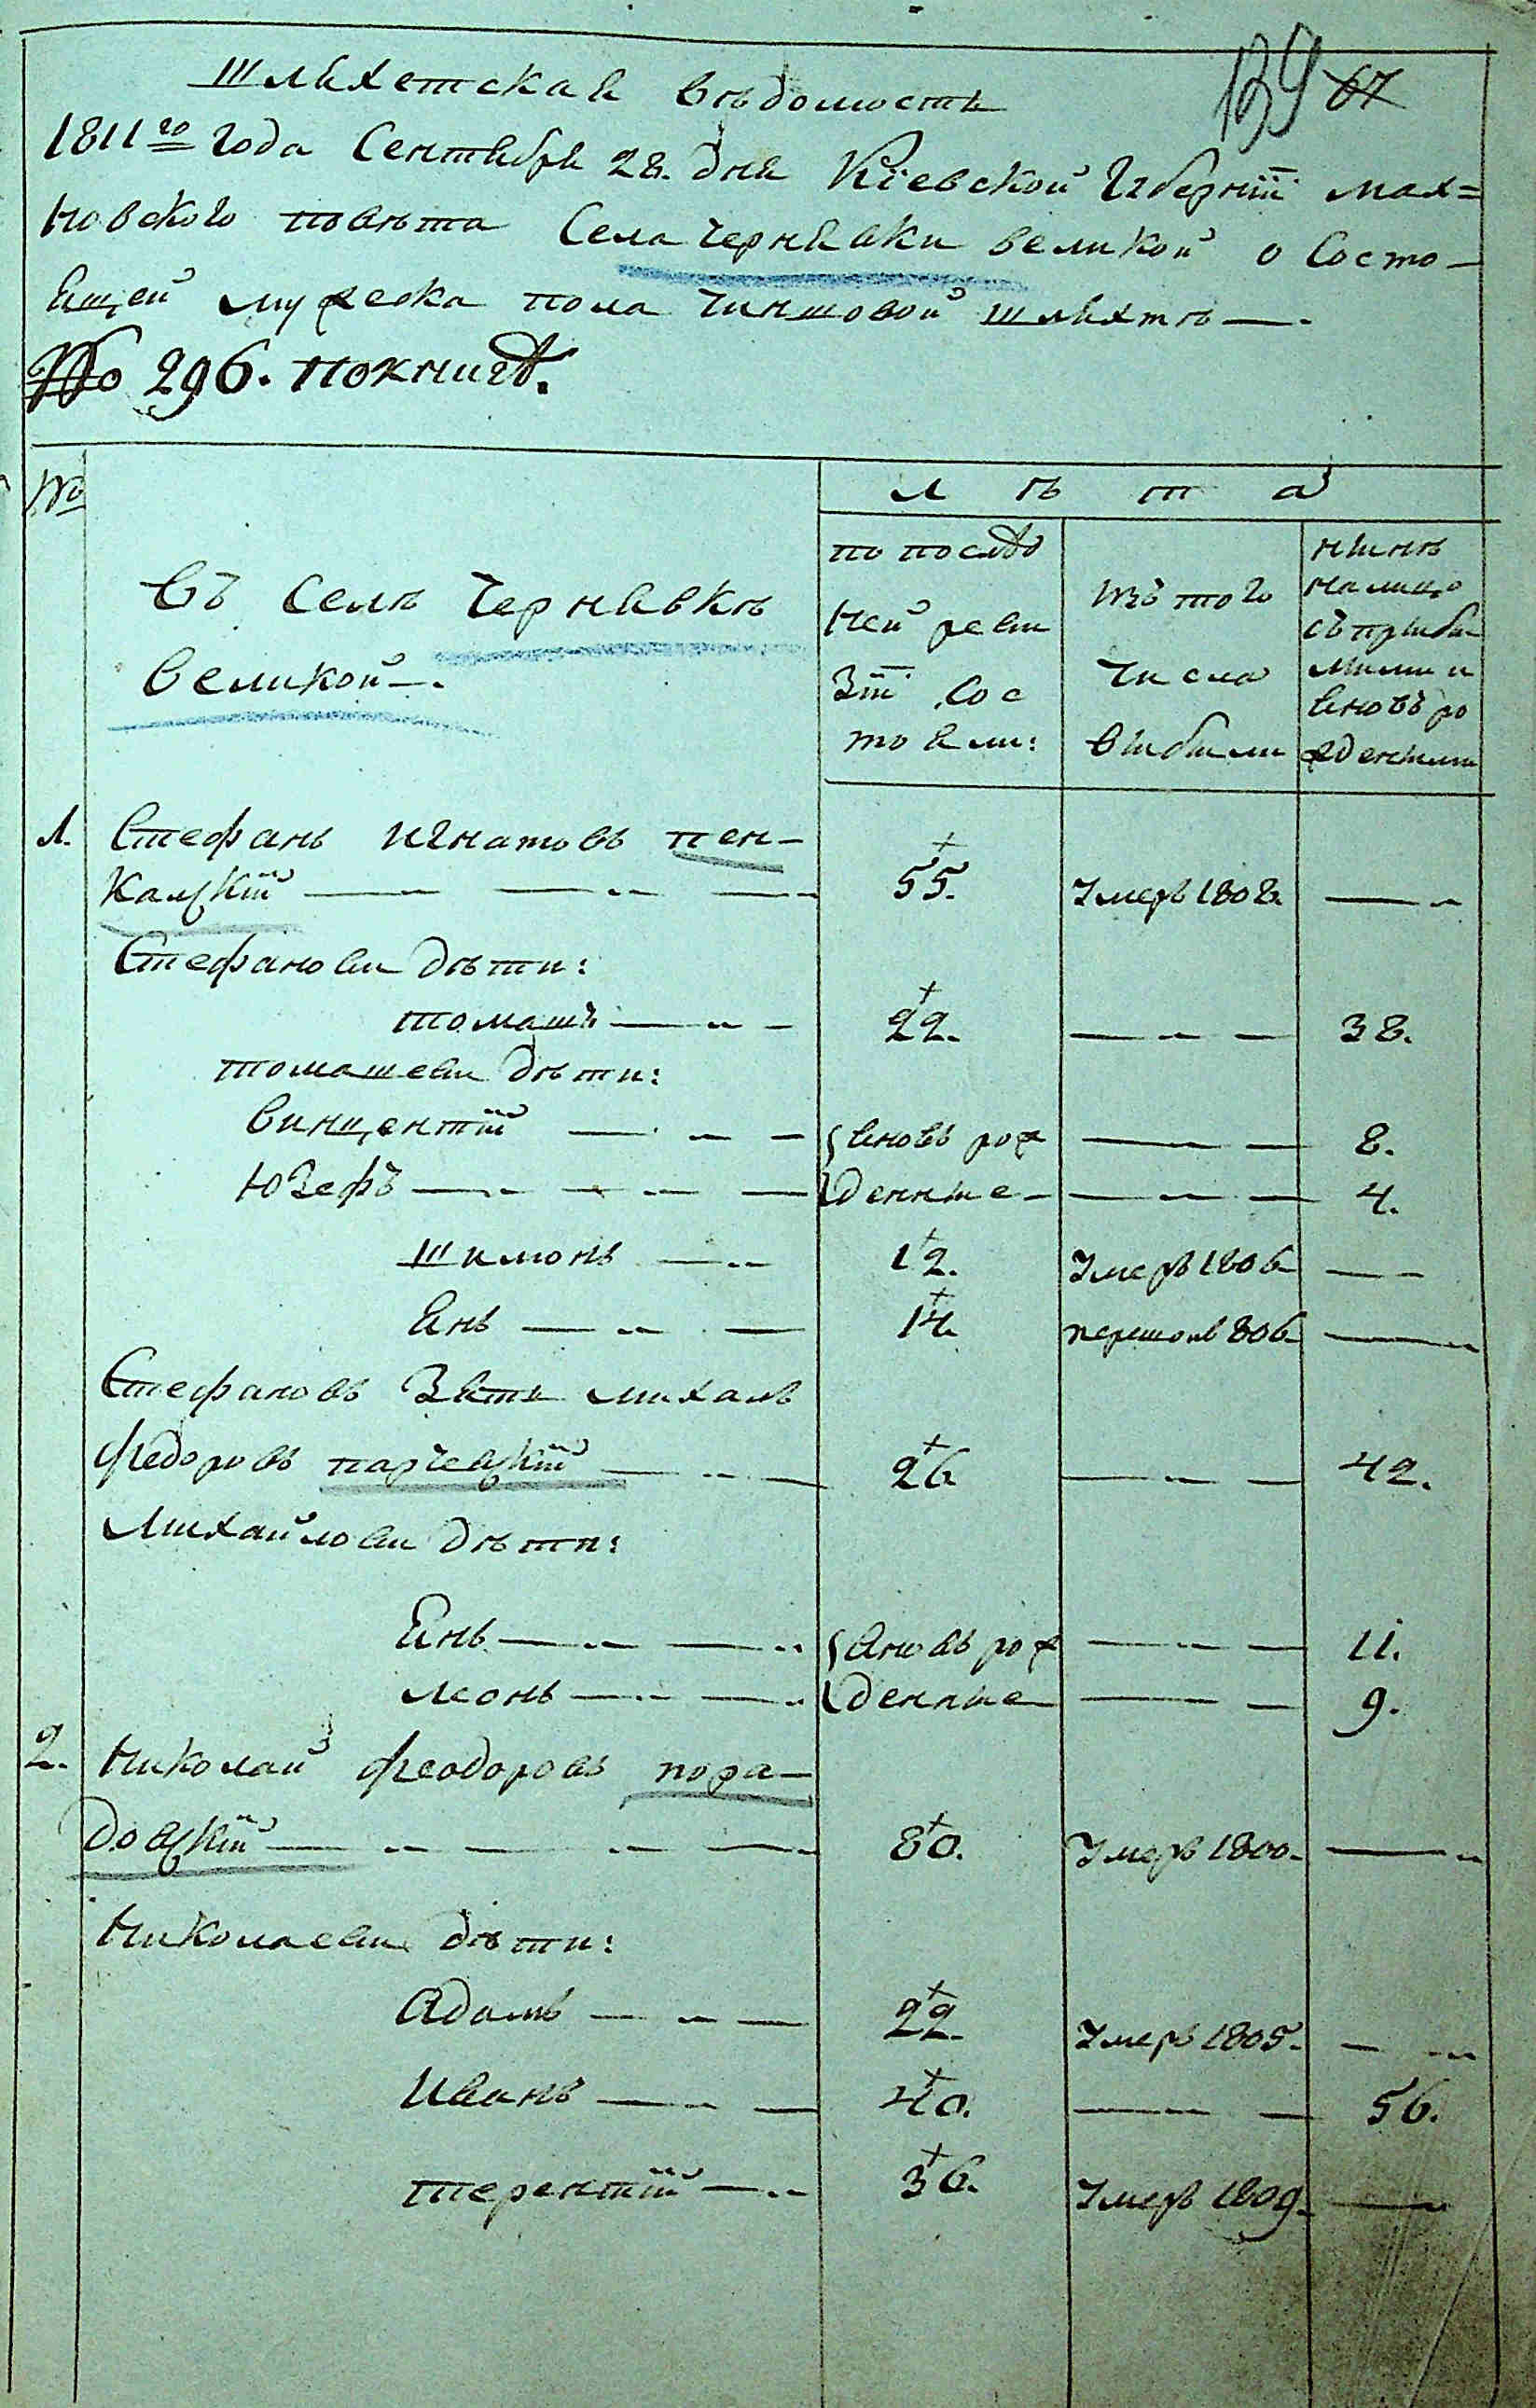 139 67
Шляхетская ведомость
1811го года Сентября 28. дня Кіевской Губерніи мах=
новского повѣта Села Чернявки великой о Состо-
ящей мужеска пола чиншовой шляхтѣ —.
No 296. по книгѣ.
No
Въ Селѣ Чернявкѣ
Великой —.
Лѣта
по послѣд
ней реви
зіи сос
тояли:
Изъ того
числа
выбыли
нынѣ
налицо
съ прибы
лыми и
вновь ро
жденными
1. Стефанъ Игнатовъ пен-
калскій — 55. Умеръ 1808. —
Стефановы дѣти:
Томашъ — 22. — 38.
Томашевы дѣти:
Винцентій — вновь рож — 8.
Юзефъ — денные — 4.
Шимонъ — 12. Умеръ 1806 —
Янъ — 14. перешолъ 806 —
Стефановъ Зять Михалъ
Федоровъ парчевскій — 26 — 42.
Михайловы дѣти:
Янъ — вновь рож — 11.
Леонъ — денные — 9.
2. Николай Феодоровъ пора-
довскій — 80. Умеръ 1800. —
Николаевы дѣти:
Адамъ — 22. Умеръ 1805. —
Иванъ — 40. — 56.
Терентій — 36. Умеръ 1809 —